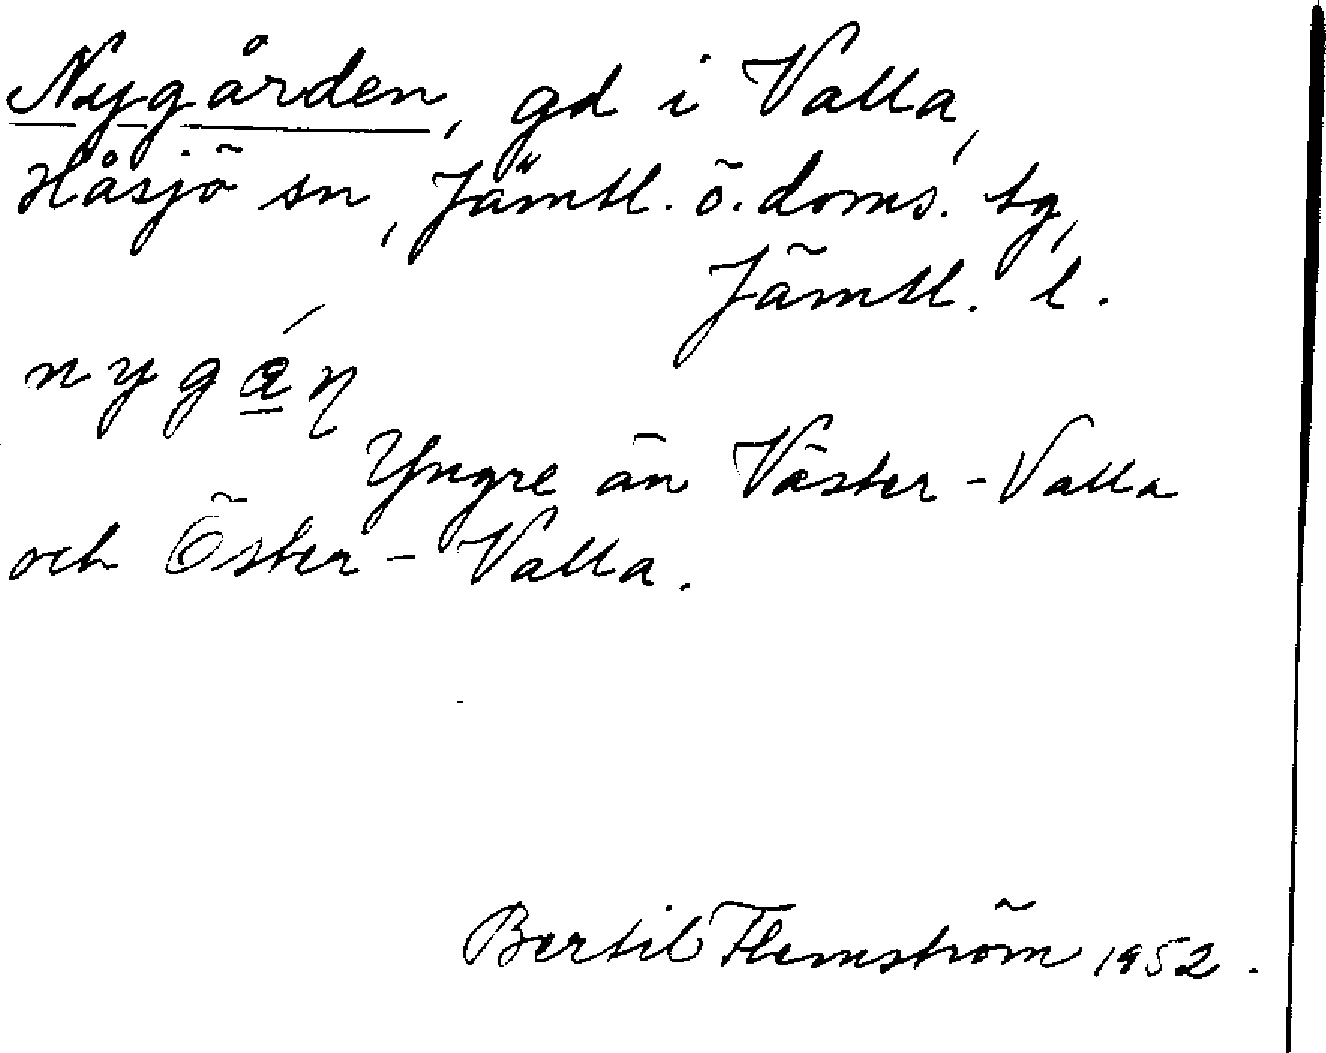 Nygården, gd i Valla,
Håsjö sn, Jämtl. ö. doms. tg,
Jämtl. l.
Yngre än Väster-Valla
och Öster-Valla.
Bertil Flemström 1952.